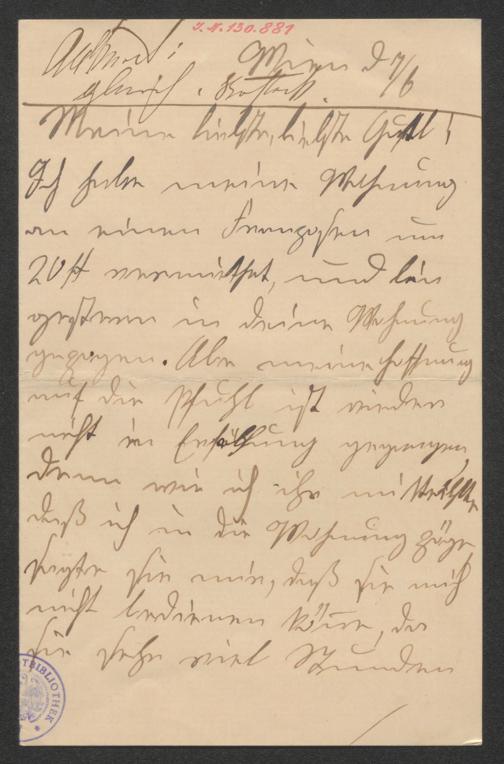 I. N. 130.881
Wien d 7/6
Meine liebste, liebste Gustl!
Ich habe meine Wohnung
an einen Franzosen um
20 fl vermiethet, und bin
gestern in deine Wohnung
gezogen. Aber meine Hoffnung
auf die Pfuhl ist wieder
nicht in Erfüllung gegangen,
denn wie ich ihr mittheilte
daß ich in die Wohnung zöge
sagte sie mir, daß sie mich
nicht bedienen könne, da
sie sehr viel Stunden
TBIBLIOTHEK